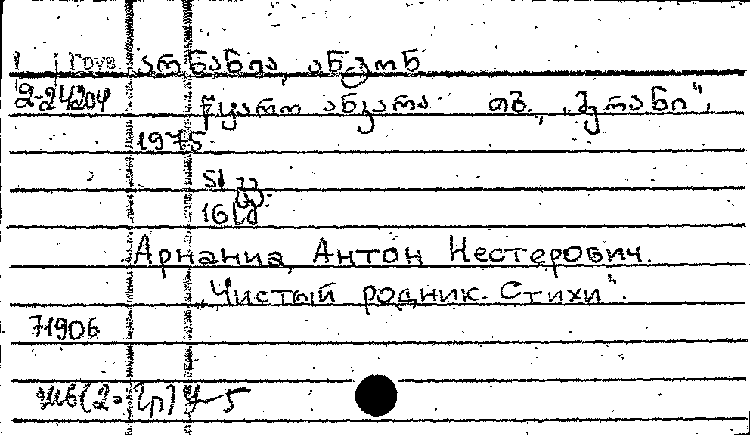 Груз. არნანია, ანტონ
2-24204
წყარო ანკარა. თბ., „მერანი“,
1975.
51 გვ.
16 ც
Арнаниа, Антон Нестерович.
„Чистый родник. Стихи“.
71906